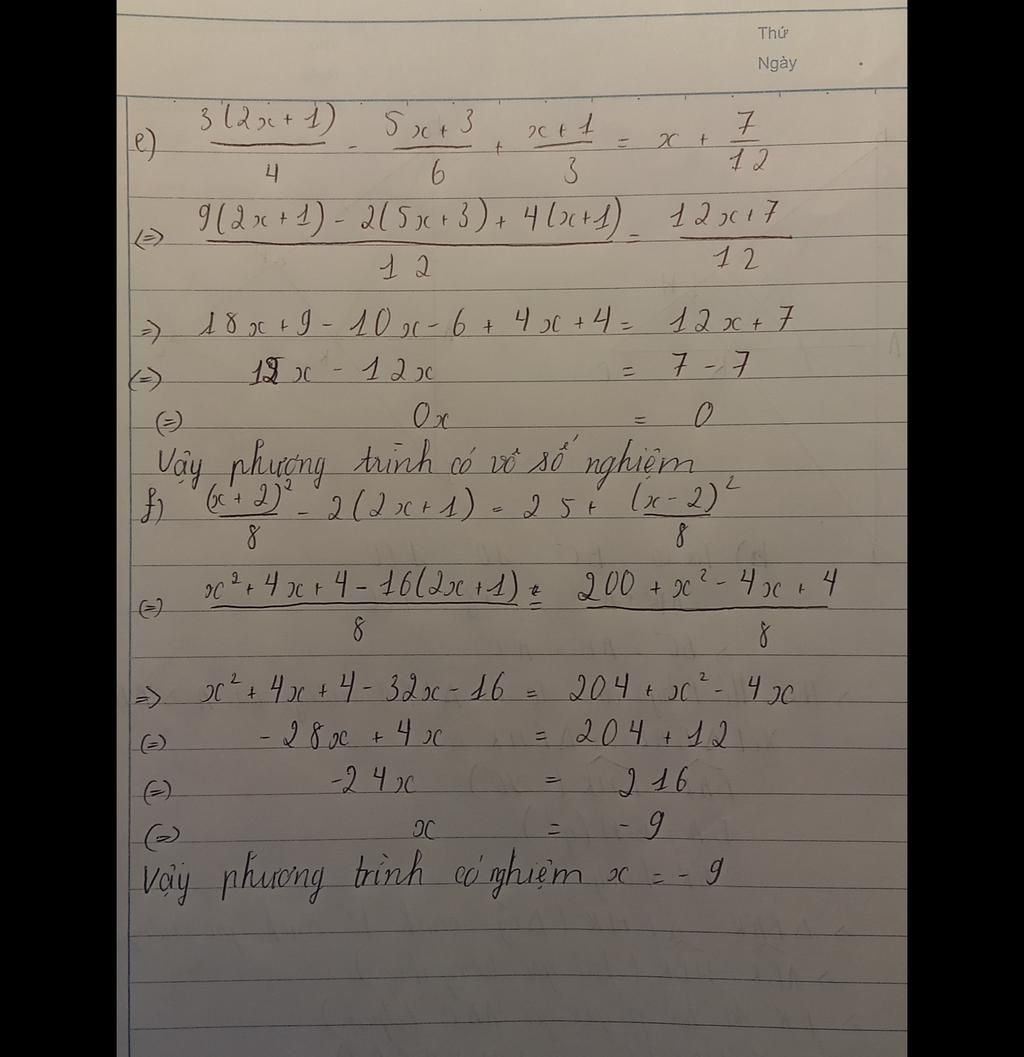 Thứ
Ngày
e) 3(2x+1)/4 - 5x+3/6 + x+1/3 = x + 7/12
(=) 9(2x+1) - 2(5x+3) + 4(x+1)/12 = 12x+7/12
=> 18x+9-10x-6+4x+4 = 12x+7
(=) 12x - 12x = 7-7
(=) 0x = 0
Vậy phương trình có vô số nghiệm
f) (x+2)²/8 - 2(2x+1) = 25 + (x-2)²/8
(=) x²+4x+4-16(2x+1)/8 = 200+x²-4x+4/8
=> x²+4x+4-32x-16 = 204+x²-4x
(=) -28x+4x = 204+12
(=) -24x = 216
(=) x = -9
Vậy phương trình có nghiệm x = -9